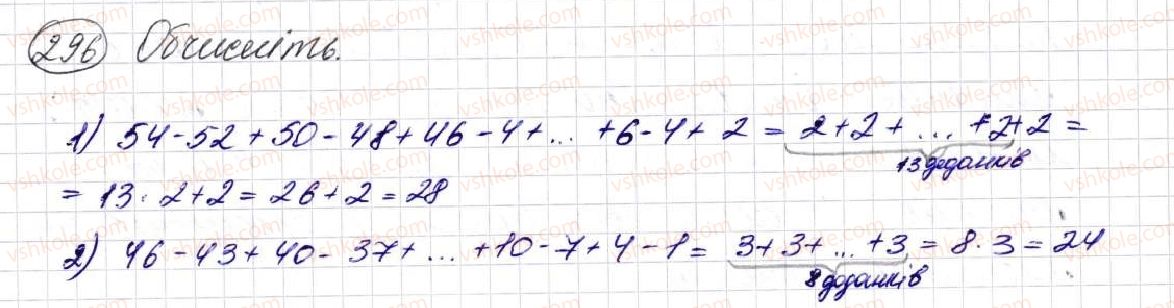 296 Обчисліть.
1) 54-52+50-48+46-4+...+6-4+2 = 2+2+...+2+2 =
13 доданків
= 13·2+2 = 26+2 = 28
2) 46-43+40-37+...+10-7+4-1 = 3+3+...+3 = 8·3 = 24
8 доданків
vshkole.com